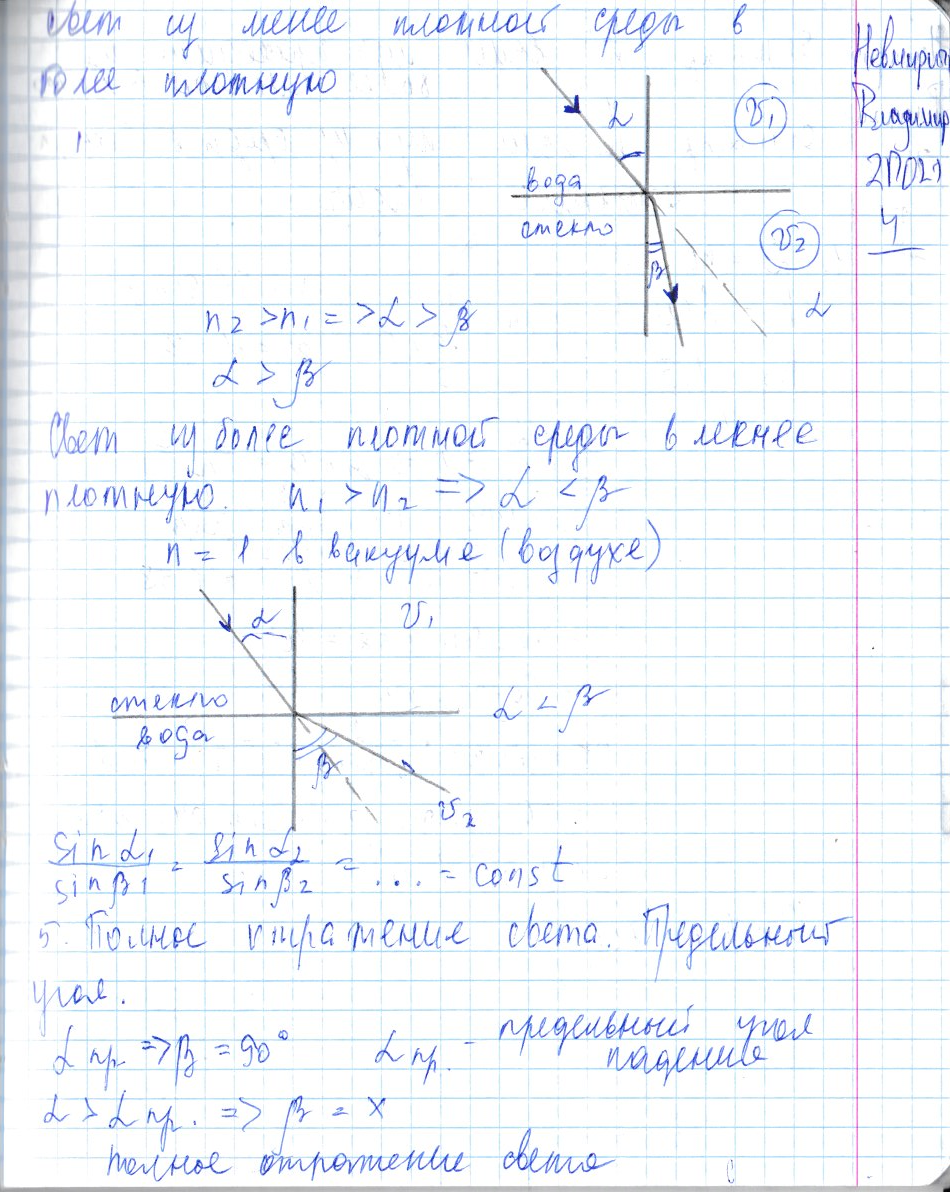 Свет из менее плотной среды в
более плотную
α
V₁
вода
стекло
V₂
β
α
n₂ > n₁ => α > β
α > β
Свет из более плотной среды в менее
плотную. n₁ > n₂ => α < β
n = 1 в вакууме (воздухе)
α
V₁
стекло
вода
α < β
β
V₂
sin α₁ / sin β₁ = sin α₂ / sin β₂ = ... = const
5. Полное отражение света. Предельный
угол.
α пр. => β = 90° α пр. - предельный угол
падения
α > α пр. => β = x
полное отражение света
Владимир
2ПО21
4